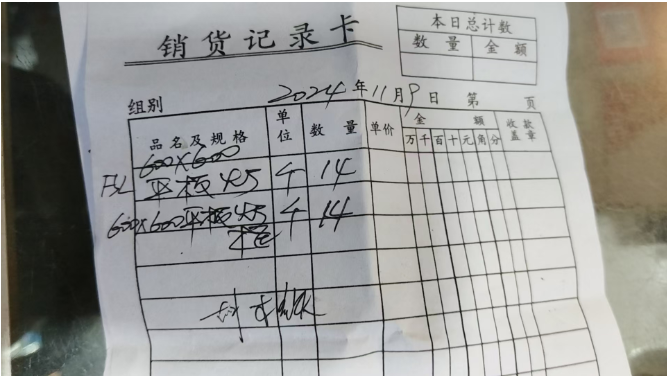 销货记录卡
本日总计数
数量 金额
组别 2024年11月9日 第 页
品名及规格 单位 数量 单价 金额 收款盖章
万千百十元角分
600×600
平板灯 个 14
600×600平板灯 个 14
框